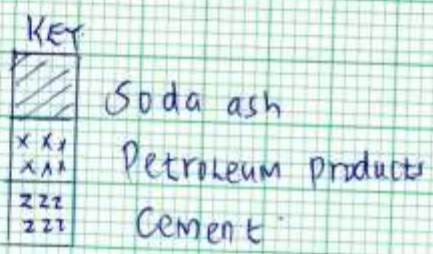 KEY
Soda ash
x x x
x x x
Petroleum products
z z z
z z z
Cement